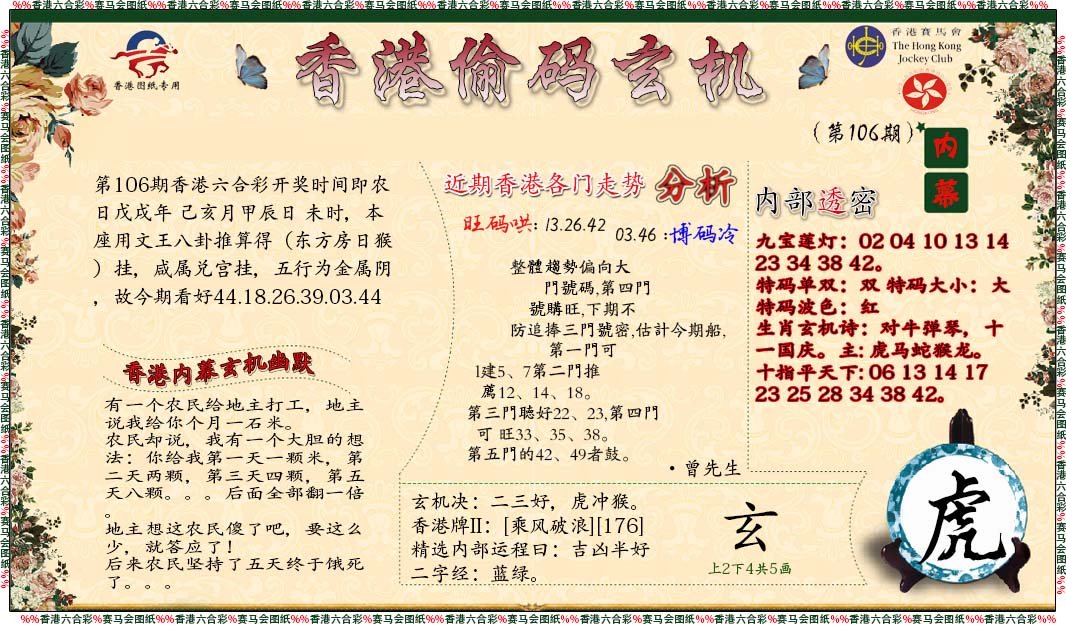 %%香港六合彩%赛马会图纸%%香港六合彩%赛马会图纸%%香港六合彩%赛马会图纸%%香港六合彩%赛马会图纸%%香港六合彩%赛马会图纸%%香港六合彩%赛马会图纸%%香港六合彩%%
香港图纸专用
香港偷码玄机
香港賽馬會
The Hong Kong
Jockey Club
(第106期)
内
幕
第106期香港六合彩开奖时间即农
日戊戌年 己亥月甲辰日 未时，本
座用文王八卦推算得（东方房日猴
）挂，咸属兑宫挂，五行为金属阴
，故今期看好44.18.26.39.03.44
香港内幕玄机幽默
有一个农民给地主打工，地主
说我给你个月一石米。
农民却说，我有一个大胆的想
法：你给我第一天一颗米，第
二天两颗，第三天四颗，第五
天八颗。。。后面全部翻一倍
。
地主想这农民傻了吧，要这么
少，就答应了！
后来农民坚持了五天终于饿死
了。。。
近期香港各门走势 分析
旺码哄: 13.26.42
03.46 :博码冷
整體趨勢偏向大
門號碼,第四門
號購旺,下期不
防追捧三門號密,估計今期船,
第一門可
1建5、7第二門推
薦12、14、18。
第三門聴好22、23,第四門
可 旺33、35、38。
第五門的42、49者鼓。
·曾先生
内部透密
九宝莲灯：02 04 10 13 14
23 34 38 42。
特码单双：双 特码大小：大
特码波色：红
生肖玄机诗：对牛弹琴，十
一国庆。主: 虎马蛇猴龙。
十指平天下: 06 13 14 17
23 25 28 34 38 42。
玄机决：二三好，虎冲猴。
香港牌II：[乘风破浪][176]
精选内部运程曰：吉凶半好
二字经：蓝绿。
玄
上2下4共5画
虎
%%香港六合彩%赛马会图纸%%香港六合彩%赛马会图纸%%香港六合彩%赛马会图纸%%香港六合彩%赛马会图纸%%香港六合彩%赛马会图纸%%香港六合彩%赛马会图纸%%香港六合彩%%